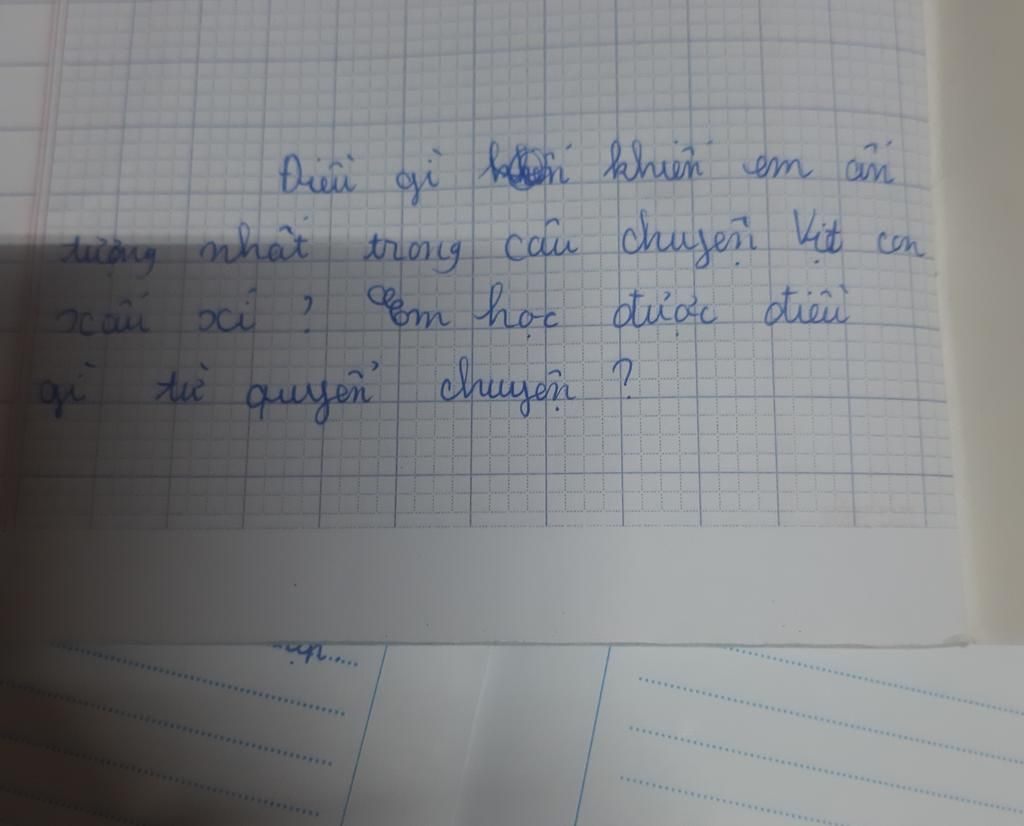 Điều gì khiến em ấn
tượng nhất trong câu chuyện Vịt con
xấu xí ? Em học được điều
gì từ quyển chuyện ?